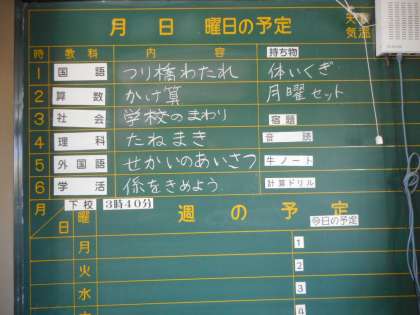 月 日 曜日の予定
気温
時 教科 内容 持ち物
1 国語 つり橋わたれ 体いくぎ
2 算数 かけ算 月曜セット
3 社会 学校のまわり 宿題
4 理科 たねまき 音読
5 外国語 せかいのあいさつ 牛ノート
6 学活 係をきめよう 計算ドリル
下校 3時40分
月 日 曜 週の予定
今日の予定
月 1
火 2
水 3
4